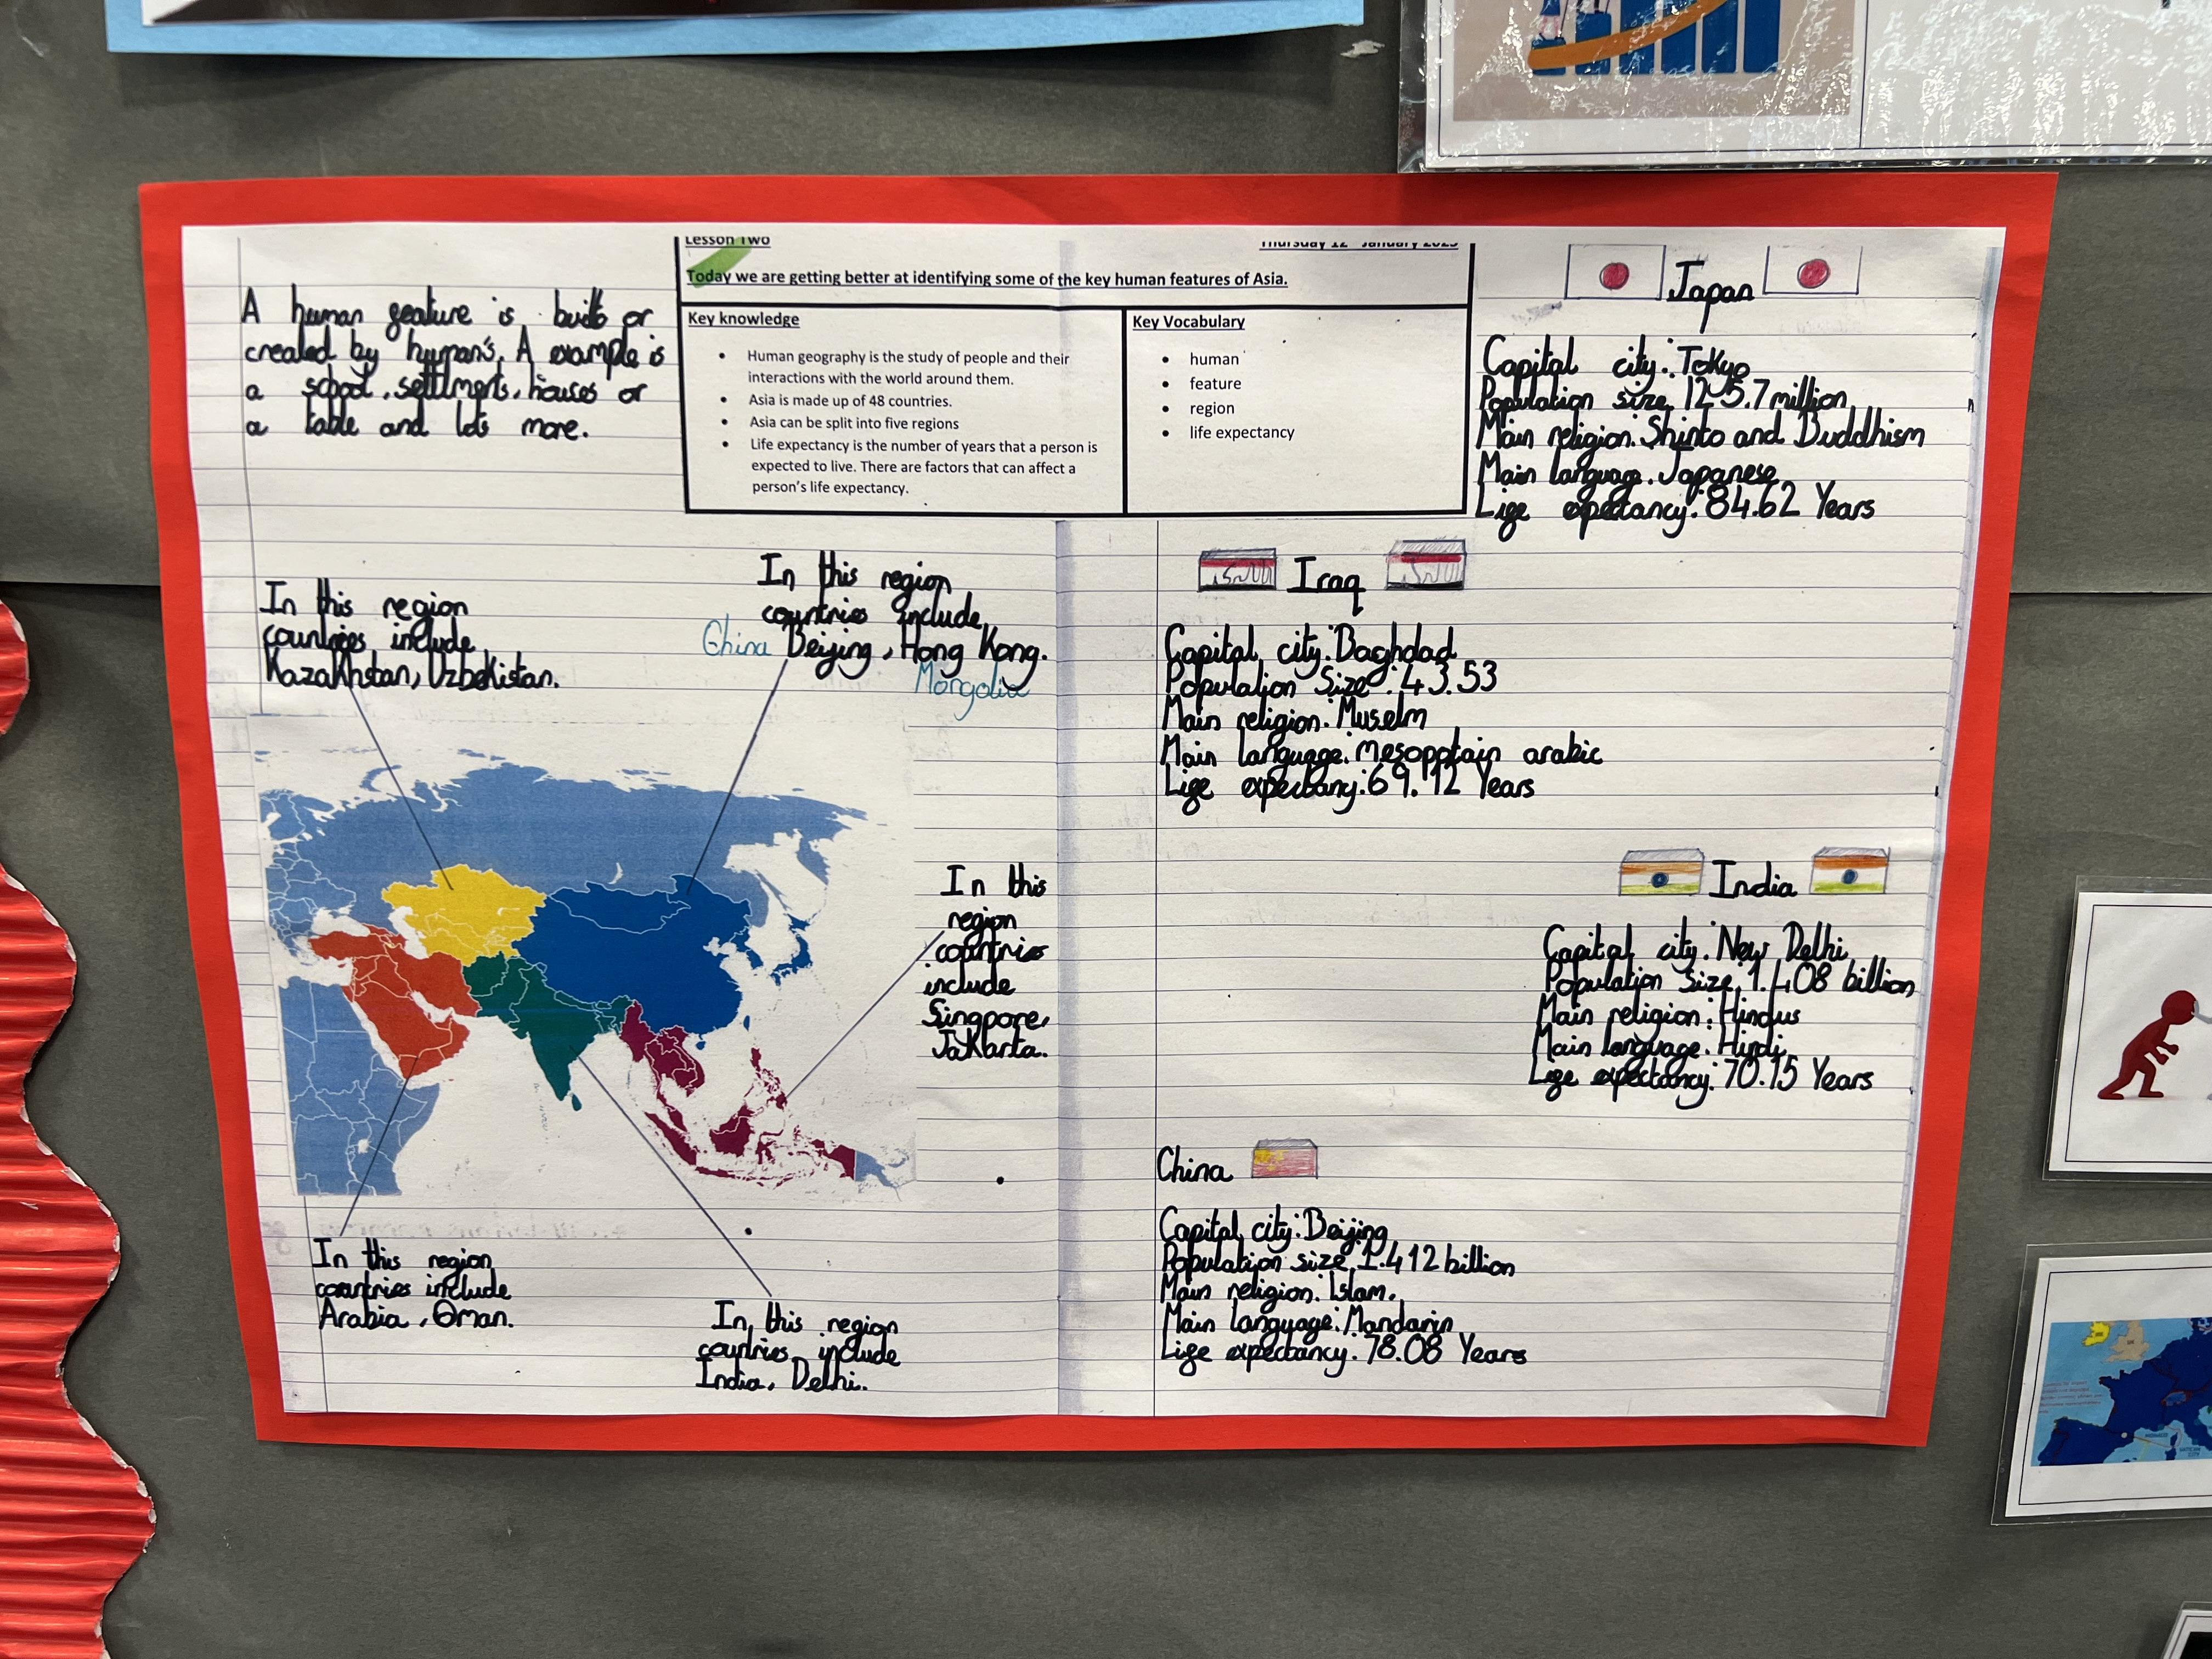 Lesson Two
Thursday 12 January 2023
Today we are getting better at identifying some of the key human features of Asia.
Key knowledge
• Human geography is the study of people and their
interactions with the world around them.
• Asia is made up of 48 countries.
• Asia can be split into five regions
• Life expectancy is the number of years that a person is
expected to live. There are factors that can affect a
person's life expectancy.
Key Vocabulary
• human
• feature
• region
• life expectancy
A human feature is built or
created by human's. A example is
a school, settlments, houses or
a table and lots more.
In this region
countries include
Kazakhstan, Uzbekistan.
In this region
countries include
China Beijing, Hong Kong.
Mongolia
In this
region
countries
include
Singpore,
Jakarta.
In this region
countries include
Arabia, Oman.
In this region
countries include
India, Delhi.
Japan
Capital city: Tokyo
Population size 125.7 million
Main religion: Shinto and Buddhism
Main language: Japanese
Life expectancy: 84.62 Years
Iraq
Capital city: Baghdad
Population Size: 43.53
Main religion: Muselm
Main language: Mesopotain arabic
Life expectancy: 69.12 Years
India
Capital city: New Delhi
Population size 1.408 billion
Main religion: Hindus
Main language: Hindi
Life expectancy: 70.15 Years
China
Capital city: Beijing
Population size 1.412 billion
Main religion: Islam.
Main language: Mandarin
Life expectancy: 78.08 Years